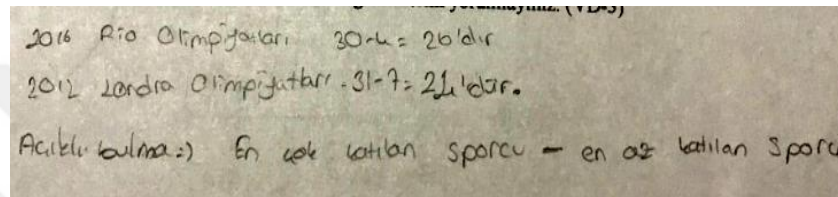 yorumlayınız. (VD-3)
2016 Rio Olimpiyatları 30-4= 26'dır
2012 Londra Olimpiyatları -31-7= 24'dür.
Açıklık bulma=) En çok katılan sporcu - en az katılan sporcu